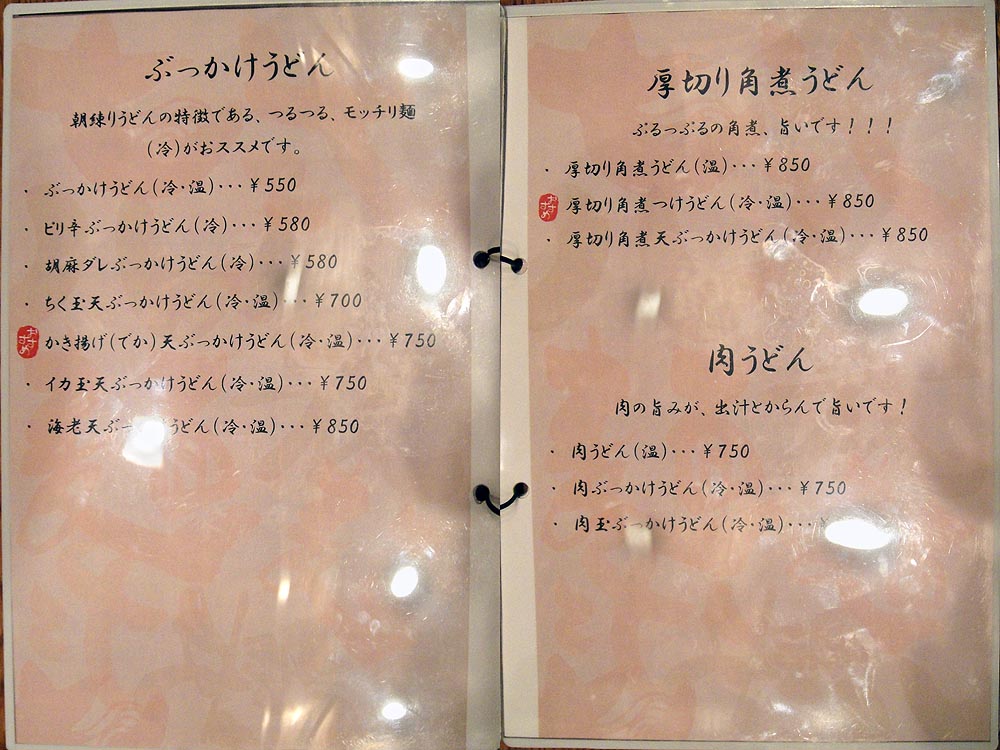 ぶっかけうどん
朝練りうどんの特徴である、つるつる、モッチリ麺
(冷)がおススメです。
・ ぶっかけうどん(冷・温)･･･￥550
・ ピリ辛ぶっかけうどん(冷)･･･￥580
・ 胡麻ダレぶっかけうどん(冷)･･･￥580
・ ちく玉天ぶっかけうどん(冷・温)･･･￥700
おすすめ かき揚げ(でか)天ぶっかけうどん(冷・温)･･･￥750
・ イカ玉天ぶっかけうどん(冷・温)･･･￥750
・ 海老天ぶっかけうどん(冷・温)･･･￥850
厚切り角煮うどん
ぷるっぷるの角煮、旨いです！！！
・ 厚切り角煮うどん(温)･･･￥850
おすすめ 厚切り角煮つけうどん(冷・温)･･･￥850
・ 厚切り角煮天ぶっかけうどん(冷・温)･･･￥850
肉うどん
肉の旨みが、出汁とからんで旨いです！
・ 肉うどん(温)･･･￥750
・ 肉ぶっかけうどん(冷・温)･･･￥750
・ 肉玉ぶっかけうどん(冷・温)･･･